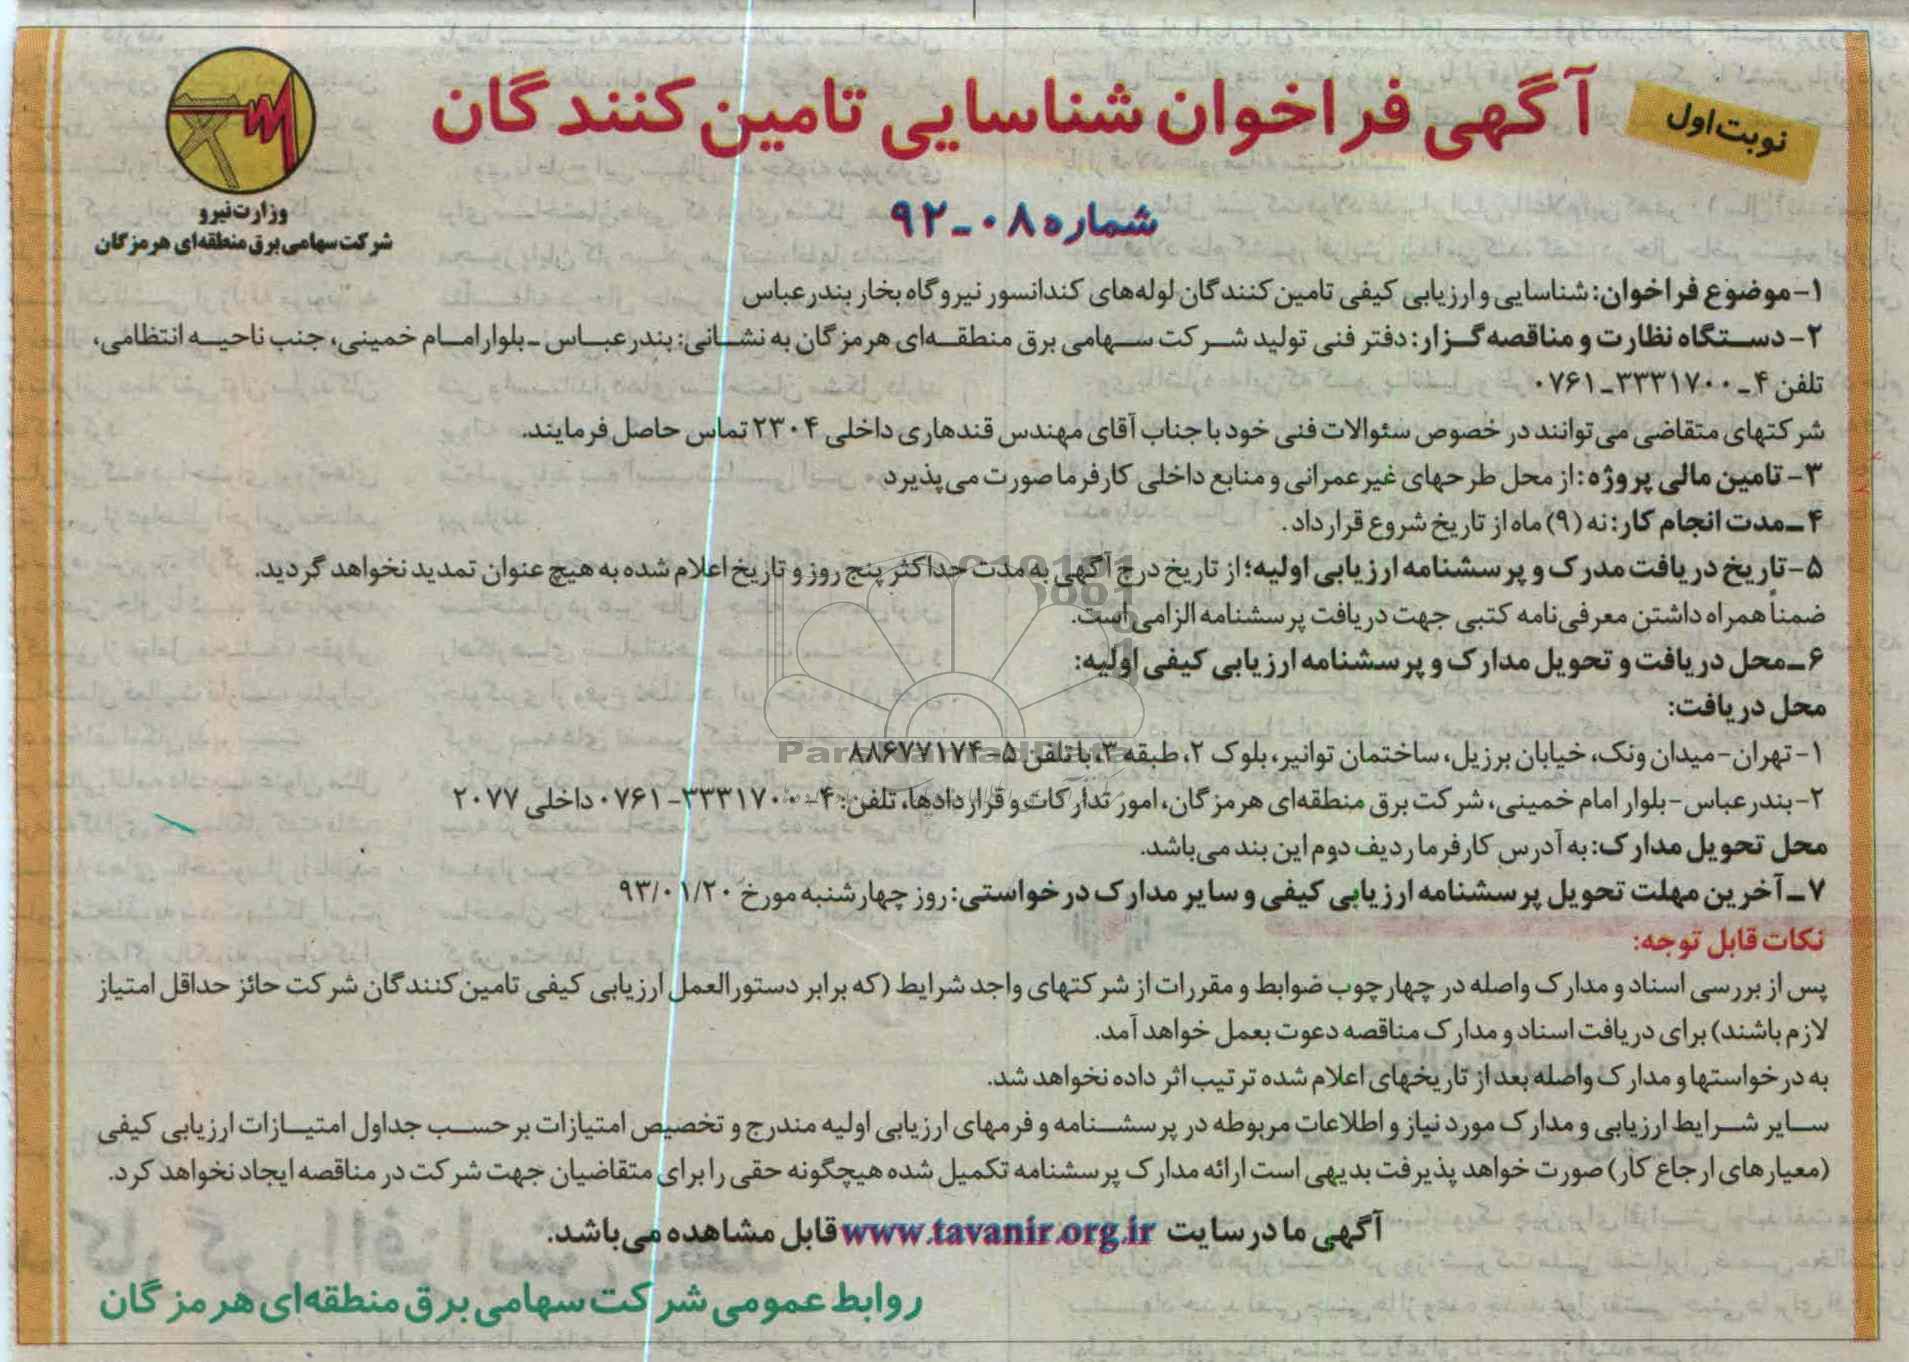 نوبت اول
آگهی فراخوان شناسایی تامین کنندگان
وزارت نیرو
شرکت سهامی برق منطقه‌ای هرمزگان
شماره ۰۸-۹۲
۱- موضوع فراخوان: شناسایی و ارزیابی کیفی تامین کنندگان لوله‌های کندانسور نیروگاه بخار بندرعباس
۲- دستگاه نظارت و مناقصه گزار: دفتر فنی تولید شرکت سهامی برق منطقه‌ای هرمزگان به نشانی: بندرعباس - بلوار امام خمینی، جنب ناحیه انتظامی،
تلفن ۴-۳۳۳۱۷۰۰-۰۷۶۱
شرکتهای متقاضی می‌توانند در خصوص سئوالات فنی خود با جناب آقای مهندس قندهاری داخلی ۲۳۰۴ تماس حاصل فرمایند.
۳- تامین مالی پروژه: از محل طرحهای غیرعمرانی و منابع داخلی کارفرما صورت می‌پذیرد
۴- مدت انجام کار: نه (۹) ماه از تاریخ شروع قرارداد.
۵- تاریخ دریافت مدرک و پرسشنامه ارزیابی اولیه؛ از تاریخ درج آگهی به مدت حداکثر پنج روز و تاریخ اعلام شده به هیچ عنوان تمدید نخواهد گردید.
ضمناً همراه داشتن معرفی‌نامه کتبی جهت دریافت پرسشنامه الزامی است.
۶- محل دریافت و تحویل مدارک و پرسشنامه ارزیابی کیفی اولیه:
محل دریافت:
۱- تهران- میدان ونک، خیابان برزیل، ساختمان توانیر، بلوک ۲، طبقه ۳، با تلفن ۵-۸۸۶۷۷۱۷۴
ParsNamadData
۲- بندرعباس- بلوار امام خمینی، شرکت برق منطقه‌ای هرمزگان، امور تدارکات و قراردادها، تلفن: ۴-۳۳۳۱۷۰۰-۰۷۶۱ داخلی ۲۰۷۷
محل تحویل مدارک: به آدرس کارفرما ردیف دوم این بند می‌باشد.
۷- آخرین مهلت تحویل پرسشنامه ارزیابی کیفی و سایر مدارک درخواستی: روز چهارشنبه مورخ ۹۳/۰۱/۲۰
نکات قابل توجه:
پس از بررسی اسناد و مدارک واصله در چهارچوب ضوابط و مقررات از شرکتهای واجد شرایط (که برابر دستورالعمل ارزیابی کیفی تامین کنندگان شرکت حائز حداقل امتیاز
لازم باشند) برای دریافت اسناد و مدارک مناقصه دعوت بعمل خواهد آمد.
به درخواستها و مدارک واصله بعد از تاریخهای اعلام شده ترتیب اثر داده نخواهد شد.
سایر شرایط ارزیابی و مدارک مورد نیاز و اطلاعات مربوطه در پرسشنامه و فرمهای ارزیابی اولیه مندرج و تخصیص امتیازات برحسب جداول امتیازات ارزیابی کیفی
(معیارهای ارجاع کار) صورت خواهد پذیرفت بدیهی است ارائه مدارک پرسشنامه تکمیل شده هیچگونه حقی را برای متقاضیان جهت شرکت در مناقصه ایجاد نخواهد کرد.
آگهی ما در سایت www.tavanir.org.ir قابل مشاهده می‌باشد.
روابط عمومی شرکت سهامی برق منطقه‌ای هرمزگان